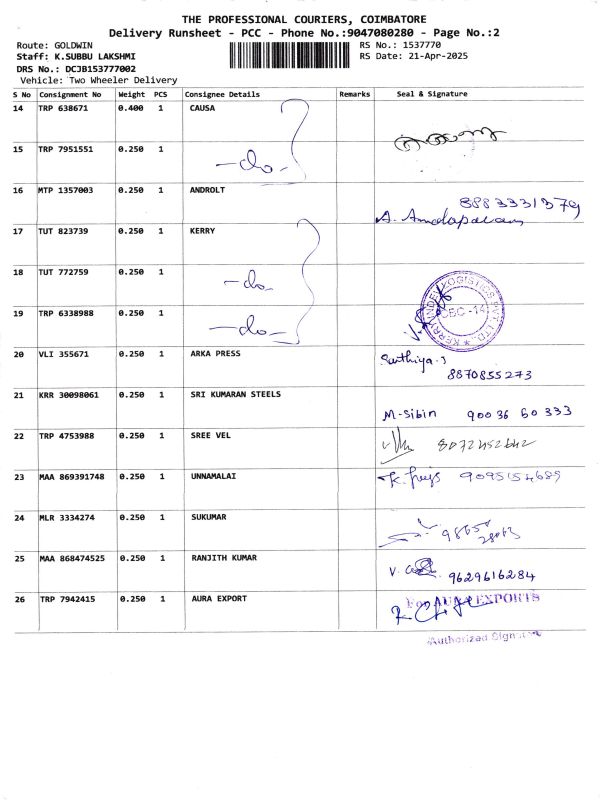 THE PROFESSIONAL COURIERS, COIMBATORE
Delivery Runsheet - PCC - Phone No.:9047080280 - Page No.:2
Route: GOLDWIN RS No.: 1537770
Staff: K.SUBBU LAKSHMI RS Date: 21-Apr-2025
DRS No.: DCJB153777002
Vehicle: Two Wheeler Delivery
S No Consignment No Weight PCS Consignee Details Remarks Seal & Signature
14 TRP 638671 0.400 1 CAUSA
15 TRP 7951551 0.250 1 -do-
16 MTP 1357003 0.250 1 ANDROLT 8883331379
17 TUT 823739 0.250 1 KERRY
18 TUT 772759 0.250 1 -do-
19 TRP 6338988 0.250 1 -do-
KERRY INDEV LOGISTICS PVT. LTD.
20 VLI 355671 0.250 1 ARKA PRESS Santhiya.S
8870855273
21 KRR 30098061 0.250 1 SRI KUMARAN STEELS M-Sibin 90036 60333
22 TRP 4753988 0.250 1 SREE VEL
23 MAA 869391748 0.250 1 UNNAMALAI 9095154689
24 MLR 3334274 0.250 1 SUKUMAR
25 MAA 868474525 0.250 1 RANJITH KUMAR 9629616284
26 TRP 7942415 0.250 1 AURA EXPORT For AURA EXPORTS
Authorized Signatory